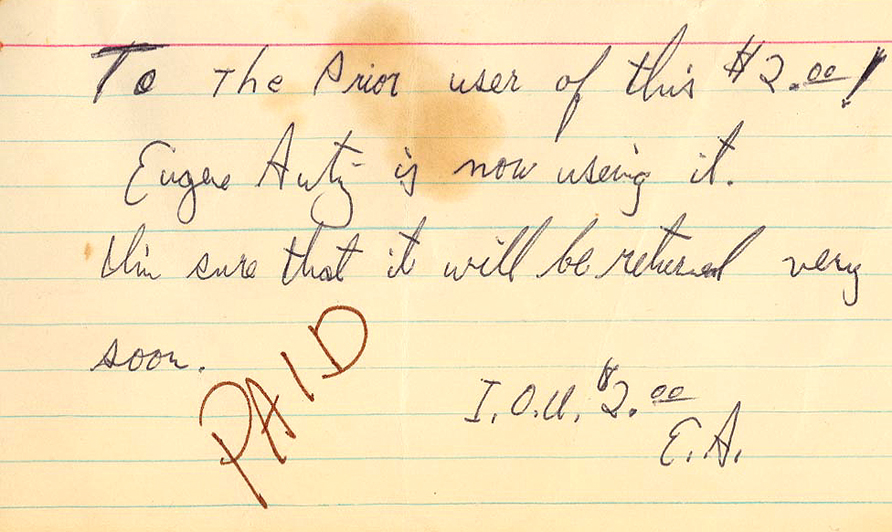 To The Prior user of this $2.00!
Eugene Autz is now using it.
I'm sure that it will be returned very
soon.
PAID
I.O.U. $2.00
E.A.